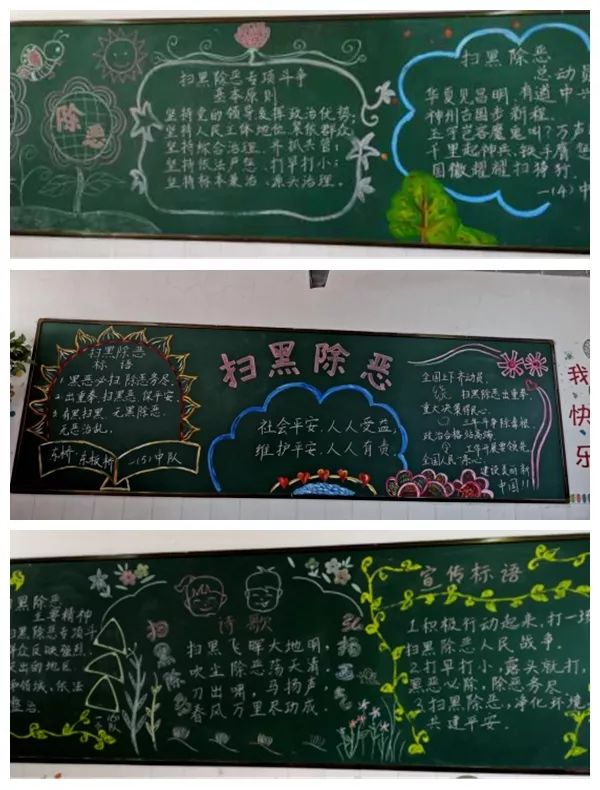 除恶
扫黑除恶专项斗争
基本原则
坚持党的领导发挥政治优势;
坚持人民主体地位、紧依群众
坚持综合治理、齐抓共管;
坚持依法严惩、打早打小;
坚持标本兼治、源头治理。
扫黑除恶
总动员
华夏见昌明,有道中兴
神州古国步新程。
千里起神兵,铁手膺惩
国徽耀耀扫狰狞.
一(4)中
扫黑除恶
标语
1.黑恶必扫 除恶务尽
2.出重拳.扫黑恶.保平安
3.有黑扫黑.无黑除恶.
无恶治乱.
东桥·东板桥 一(5)中队
扫黑除恶
社会平安.人人受益,
维护平安.人人有责
全国上下齐动员.
扫黑除恶出重拳.
重大决策得民心.
三年斗争除毒根.
政治合格站高端
全国人民一条心.
建设美丽新
中国!!
我
快
乐
黑除恶
主要精神
扫黑除恶专项斗
群众反映强烈.
突出的地区
和领域,依法
诗歌
扫黑除恶
扫黑飞晖大地明,
吹尘除恶荡天清.
刀出啸,马扬声,
春风万里尽功成.
宣传标语
1.积极行动起来,打一场
扫黑除恶人民战争。
2.打早打小,露头就打,
黑恶必除,除恶务尽
3.扫黑除恶,净化环境,
共建平安.